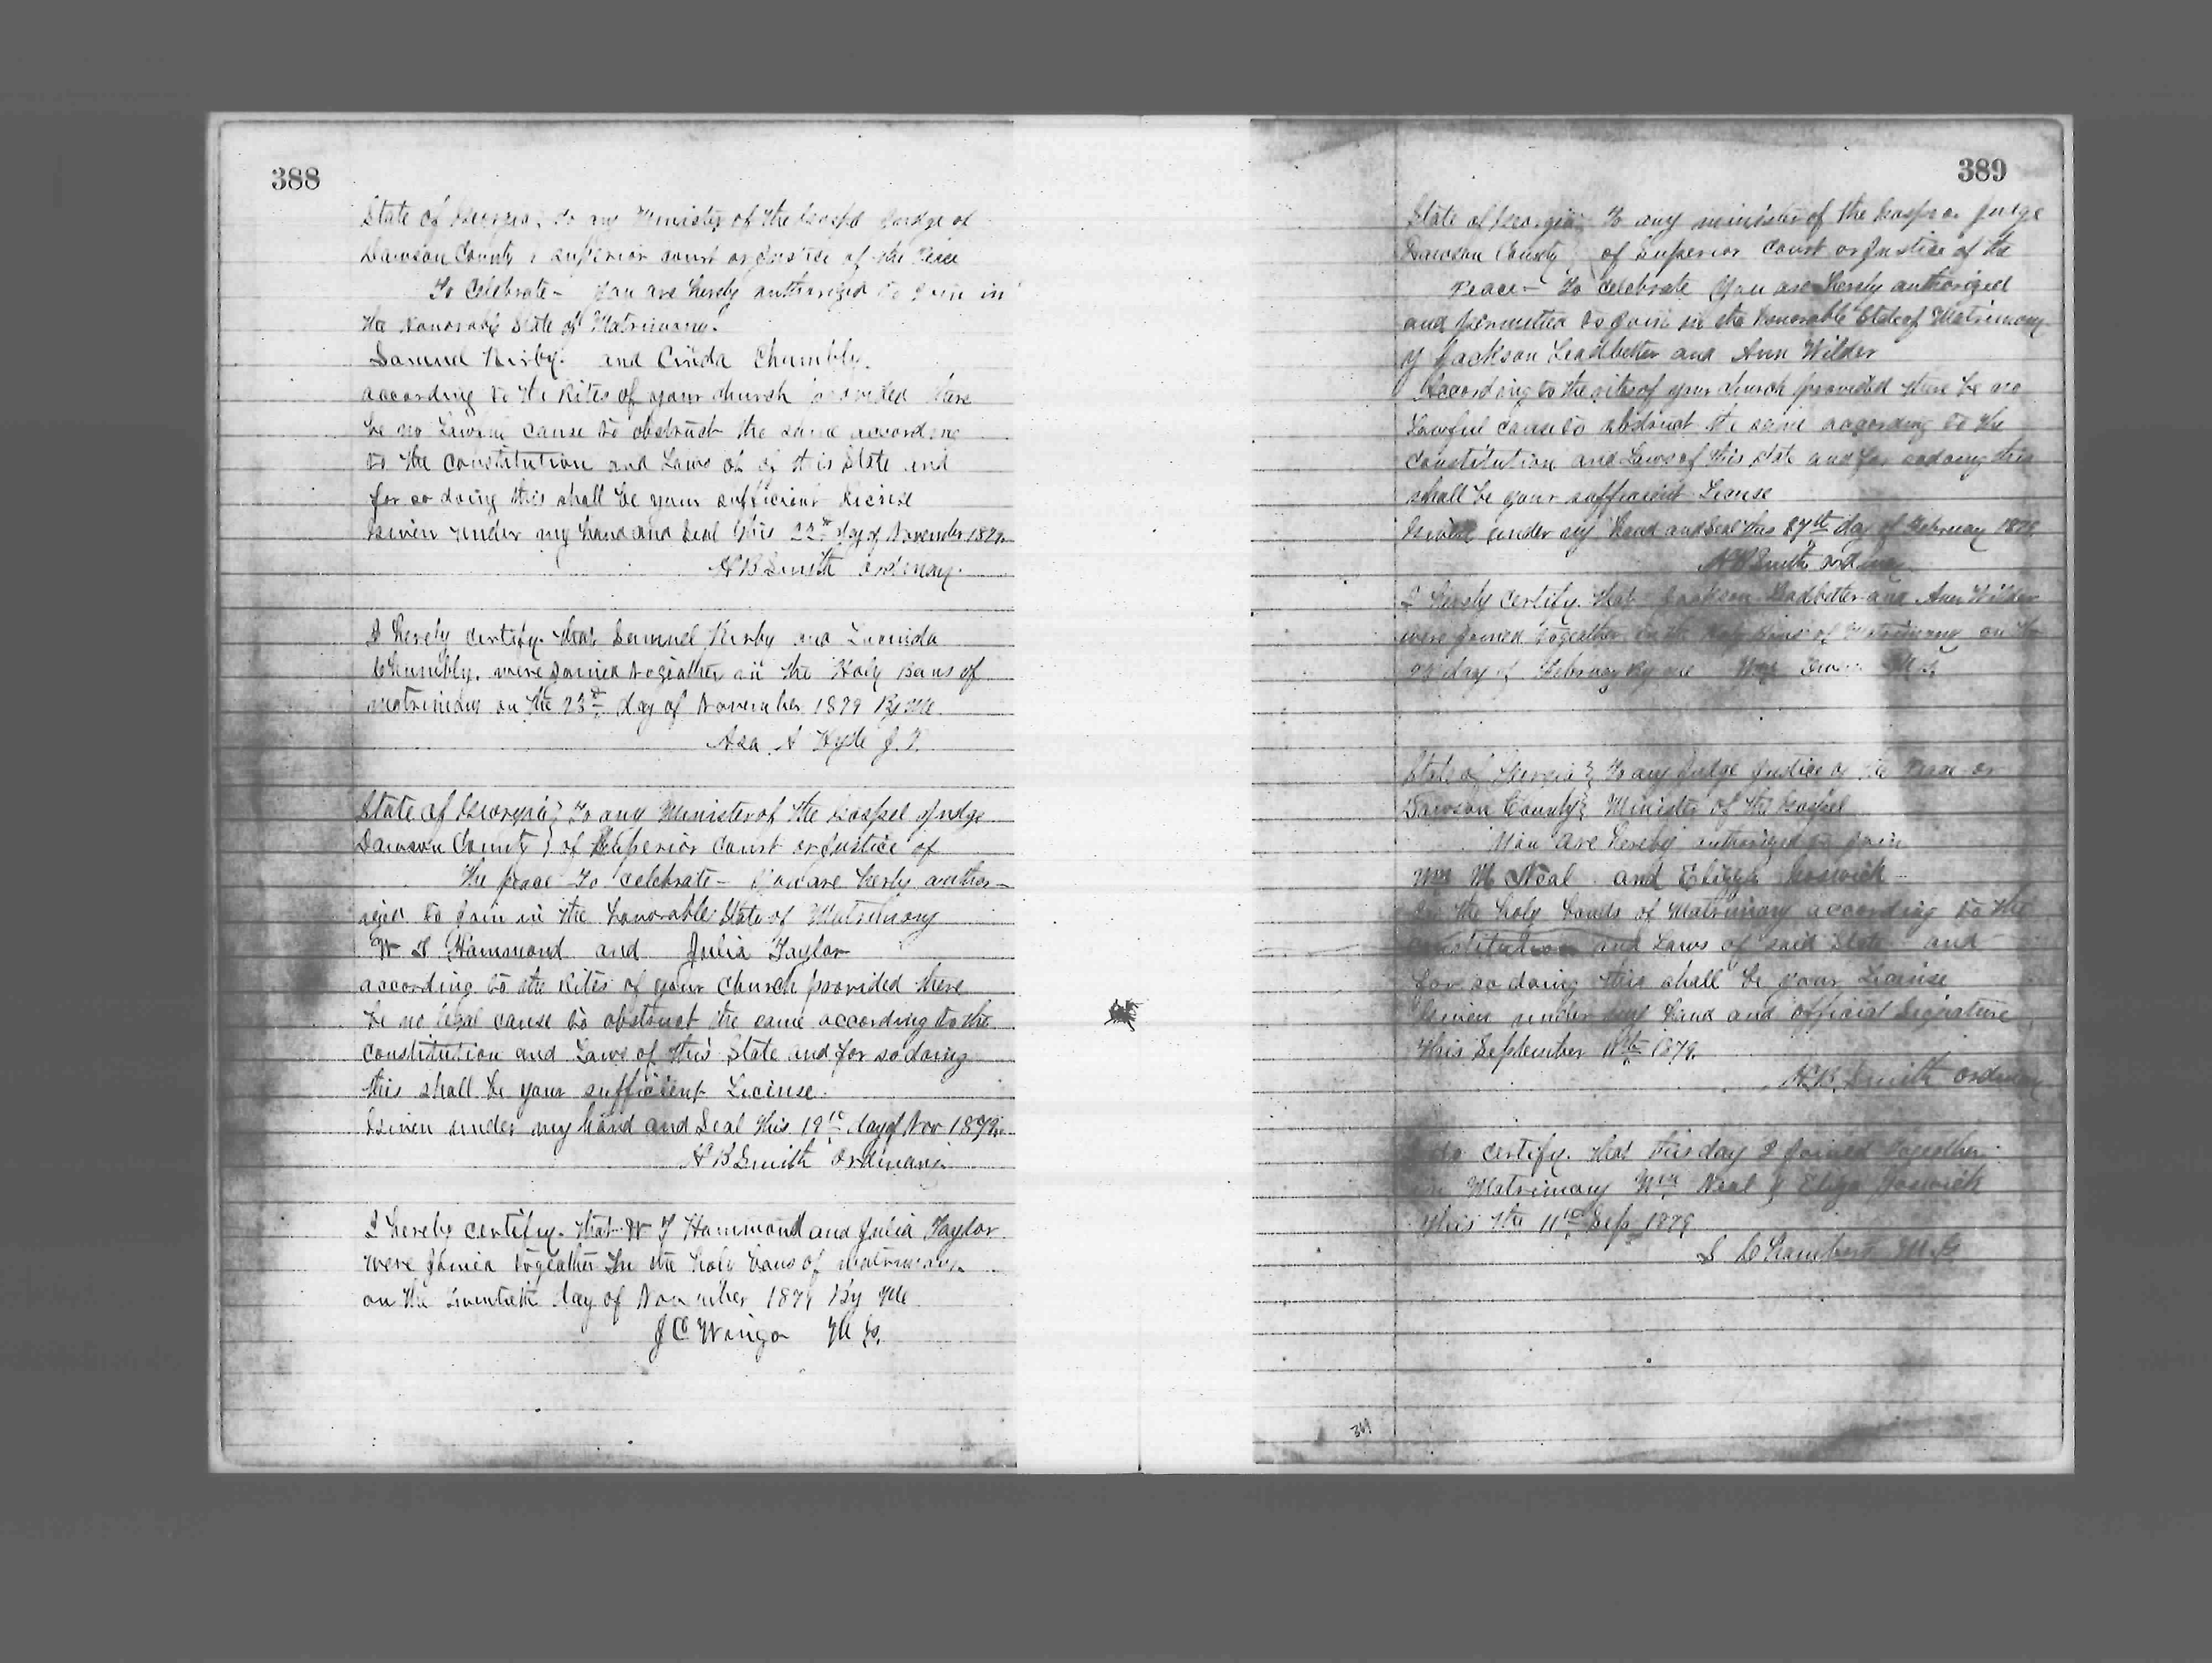 388
State of Georgia; To any Minister of the Gospel Judge of
Dawson County } Superior court or Justice of the Peace
To Celebrate - You are herely authorized to Join in
the Honorable State of Matrimony.
Samuel Kirby. and Cinda Chumbly.
according to the Rites of your church provided there
be no Lawful cause to obstruct the same according
to the Constitution and Laws of of this State and
for so doing this shall be your sufficient License
Given under my hand and Seal this 22nd day of November 1879
H B Smith Ordinary.
I herely certify. that Samuel Kirby and
Chumbly. were Joined togeather in the Holy Bans of
matrimony on the 23rd day of November 1879 By Me
Asa A Hyde J. P.
State of Georgia; To any Minister of the Gospel Judge
Dawson County } of Superior Court or Justice of
the peace To Celebrate - You are herely author-
ized to Join in the honorable State of Matrimony
W T Hammond and Julia Taylor
according to the Rites of your Church provided there
be no legal cause to obstruct the same according to the
constitution and Laws of this State and for so doing
this shall be your sufficient License.
Given under my hand and Seal this 19th day of Nov 1879.
H B Smith Ordinary
I hereby certify. that W T Hammond and Julia Taylor
were Joined togeather In the holy bans of matrimony.
on the twentieth day of November 1879 By Me
J C Wingo M G.
389
State of Georgia; To any minister of the Gospel or Judge
Dawson County } of Superior Court or Justice of the
Peace - To Celebrate You are herely authorized
and permitted to Join in the honorable State of Matrimony
of Jackson Leadbetter and Ann Wilder
According to the rites of your church provided there be no
Lawful cause to obstruct the same according to the
constitution and Laws of this state and for so doing this
shall be your sufficient License
Given under my hand and Seal this 27th day of February 1879
H B Smith Ordinary
I herely certify. that Jackson Leadbetter and Ann Wilder
were Joined togeather in the holy Bans of Matrimony on the
day of February By me Wm M. G.
State of Georgia } To any Judge Justice of the Peace or
Dawson County } Minister of the Gospel
You are hereby authorized to Join
Wm M Neal and Eliza
In the holy bonds of Matrimony according to the
constitution and Laws of said State and
for so doing this shall be your License
Given under my hand and official Signature
this September 11th 1879.
H B Smith Ordinary
I do certify. that this day I Joined togeather
in Matrimony Wm Neal & Eliza
this the 11th Sep 1879
M G
369